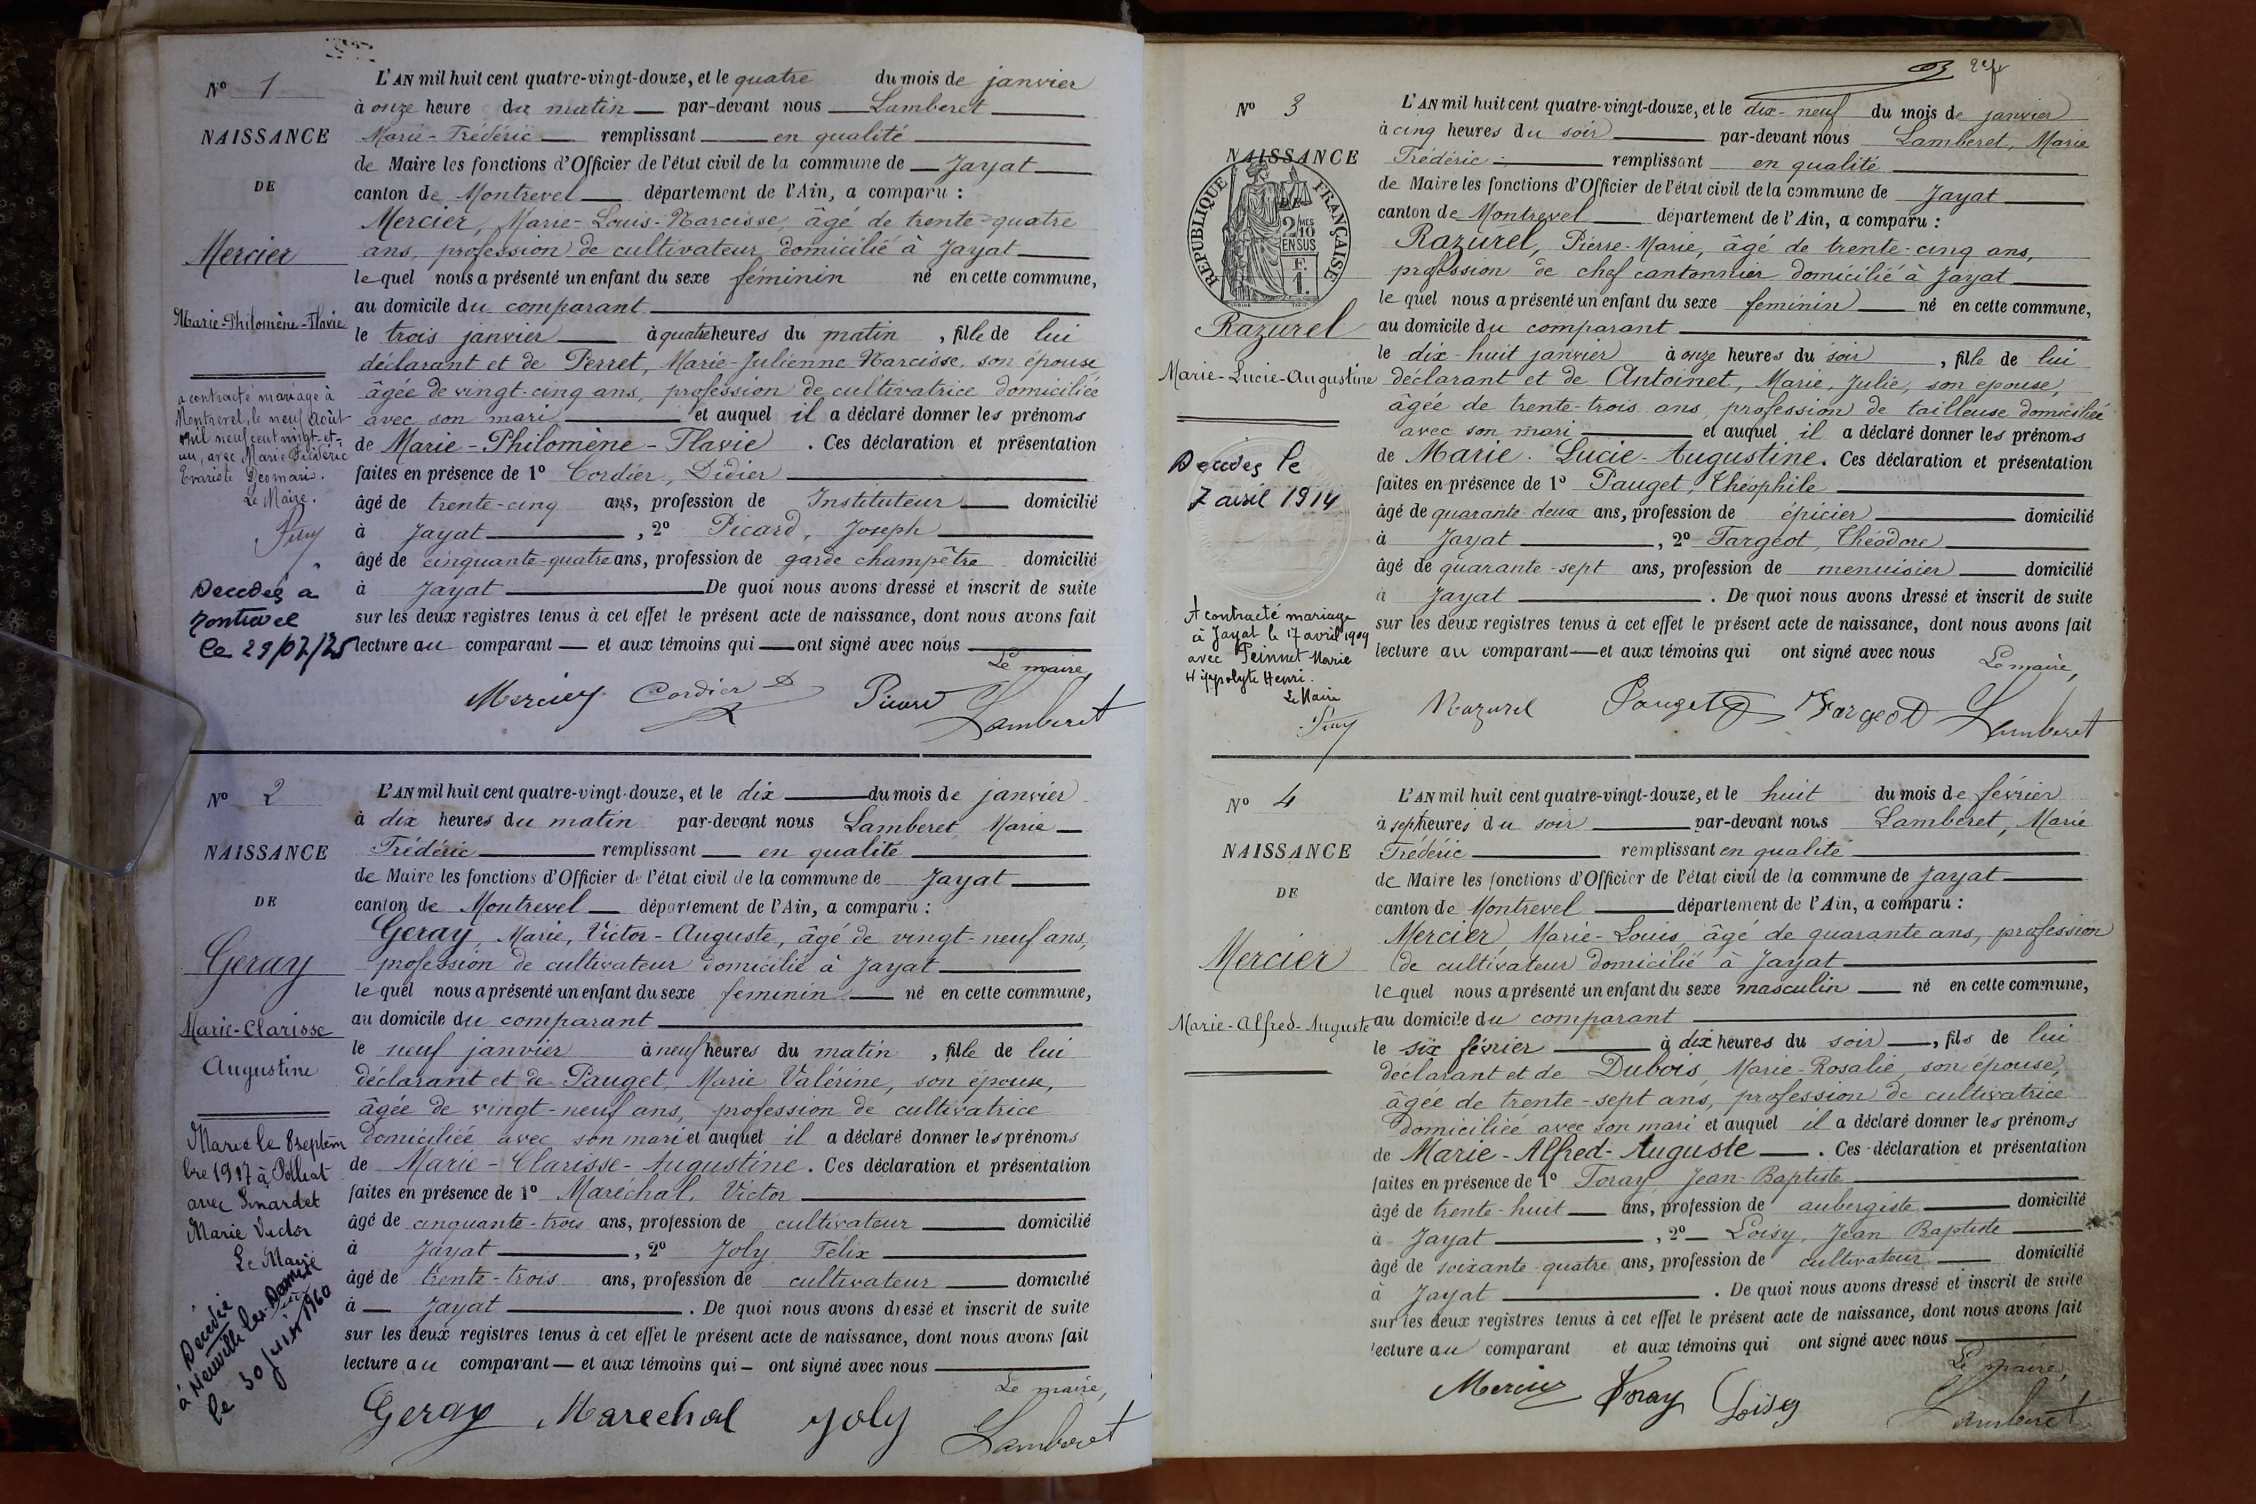 N° 1
NAISSANCE
DE
Mercier
Marie-Philomène-Flavie
a contracté mariage à
Montrevel, le neuf Août
mil neuf cent vingt-et-
un, avec Marie Frédéric
Evariste Desmaris.
Le Maire.
Decedes a
le 29/07/75
L'AN mil huit cent quatre-vingt-douze, et le quatre du mois de janvier
à onze heure du matin par-devant nous Lamberet
Marie-Frédéric remplissant en qualité
de Maire les fonctions d'Officier de l'état civil de la commune de Jayat
canton de Montrevel département de l'Ain, a comparu :
Mercier, Marie-Louis-Narcisse, âgé de trente-quatre
ans, profession de cultivateur domicilié à Jayat
lequel nous a présenté un enfant du sexe féminin né en cette commune,
au domicile du comparant
le trois janvier à quatre heures du matin, fille de lui
déclarant et de Perret, Marie-Julienne-Narcisse, son épouse
âgée de vingt-cinq ans, profession de cultivatrice domiciliée
avec son mari et auquel il a déclaré donner les prénoms
de Marie-Philomène-Flavie. Ces déclaration et présentation
faites en présence de 1° Cordier, Didier
âgé de trente-cinq ans, profession de Instituteur domicilié
à Jayat, 2° Picard, Joseph
âgé de cinquante-quatre ans, profession de garde champêtre domicilié
à Jayat De quoi nous avons dressé et inscrit de suite
sur les deux registres tenus à cet effet le présent acte de naissance, dont nous avons fait
lecture au comparant et aux témoins qui ont signé avec nous
Le maire,
Mercier Cordier D Picard Lamberet
N° 2
NAISSANCE
DE
Geray
Marie-Clarisse
Augustine
Marié le 8 septem
bre 1917 à Polliat
avec
Marie Victor
Le Maire
Décédée
à Neuville les Dames
le 30 juin 1960
L'AN mil huit cent quatre-vingt-douze, et le dix du mois de janvier
à dix heures du matin par-devant nous Lamberet, Marie
Frédéric remplissant en qualité
de Maire les fonctions d'Officier de l'état civil de la commune de Jayat
canton de Montrevel département de l'Ain, a comparu :
Geray, Marie, Victor-Auguste, âgé de vingt-neuf ans,
profession de cultivateur domicilié à Jayat
lequel nous a présenté un enfant du sexe feminin né en cette commune,
au domicile du comparant
le neuf janvier à neuf heures du matin, fille de lui
déclarant et de Pauget, Marie Valérine, son épouse,
âgée de vingt-neuf ans, profession de cultivatrice
domiciliée avec son mari et auquel il a déclaré donner les prénoms
de Marie-Clarisse-Augustine. Ces déclaration et présentation
faites en présence de 1° Maréchal, Victor
âgé de cinquante-trois ans, profession de cultivateur domicilié
à Jayat, 2° Joly Félix
âgé de trente-trois ans, profession de cultivateur domicilié
à Jayat. De quoi nous avons dressé et inscrit de suite
sur les deux registres tenus à cet effet le présent acte de naissance, dont nous avons fait
lecture au comparant et aux témoins qui ont signé avec nous
Le maire,
Geray Marechal Joly Lamberet
N° 3
NAISSANCE
RÉPUBLIQUE FRANÇAISE
2/10 MES
EN SUS
F.
1.
Razurel
Marie-Lucie-Augustine
Decedes le
7 avril 1914
A contracté mariage
à Jayat le 17 avril 1909
avec Peinnet Marie
Hippolyte Henri.
Le Maire
L'AN mil huit cent quatre-vingt-douze, et le dix-neuf du mois de janvier
à cinq heures du soir par-devant nous Lamberet, Marie
Frédéric remplissant en qualité
de Maire les fonctions d'Officier de l'état civil de la commune de Jayat
canton de Montrevel département de l'Ain, a comparu :
Razurel, Pierre-Marie, âgé de trente-cinq ans,
profession de chef cantonnier domicilié à Jayat
lequel nous a présenté un enfant du sexe feminin né en cette commune,
au domicile du comparant
le dix-huit janvier à onze heures du soir, fille de lui
déclarant et de Antoinet, Marie, Julie, son épouse,
âgée de trente-trois ans, profession de tailleuse domiciliée
avec son mari et auquel il a déclaré donner les prénoms
de Marie. Lucie-Augustine. Ces déclaration et présentation
faites en présence de 1° Pauget, Théophile
âgé de quarante deux ans, profession de épicier domicilié
à Jayat, 2° Fargeot, Théodore
âgé de quarante-sept ans, profession de menuisier domicilié
à Jayat. De quoi nous avons dressé et inscrit de suite
sur les deux registres tenus à cet effet le présent acte de naissance, dont nous avons fait
lecture au comparant et aux témoins qui ont signé avec nous
Le maire,
Razurel Pauget Fargeot Lamberet
N° 4
NAISSANCE
DE
Mercier
Marie-Alfred-Auguste
L'AN mil huit cent quatre-vingt-douze, et le huit du mois de février
à sept heures du soir par-devant nous Lamberet, Marie
Frédéric remplissant en qualité
de Maire les fonctions d'Officier de l'état civil de la commune de Jayat
canton de Montrevel département de l'Ain, a comparu :
Mercier, Marie-Louis âgé de quarante ans, profession
de cultivateur domicilié à Jayat
lequel nous a présenté un enfant du sexe masculin né en cette commune,
au domicile du comparant
le six février à dix heures du soir, fils de lui
déclarant et de Dubois, Marie-Rosalie, son épouse,
âgée de trente-sept ans, profession de cultivatrice
domiciliée avec son mari et auquel il a déclaré donner les prénoms
de Marie-Alfred-Auguste. Ces déclaration et présentation
faites en présence de 1° Foray, Jean-Baptiste
âgé de trente-huit ans, profession de aubergiste domicilié
à Jayat, 2° Loisy, Jean Baptiste
âgé de soixante-quatre ans, profession de cultivateur domicilié
à Jayat. De quoi nous avons dressé et inscrit de suite
sur les deux registres tenus à cet effet le présent acte de naissance, dont nous avons fait
lecture au comparant et aux témoins qui ont signé avec nous
Le maire,
Mercier Foray Loisy Lamberet